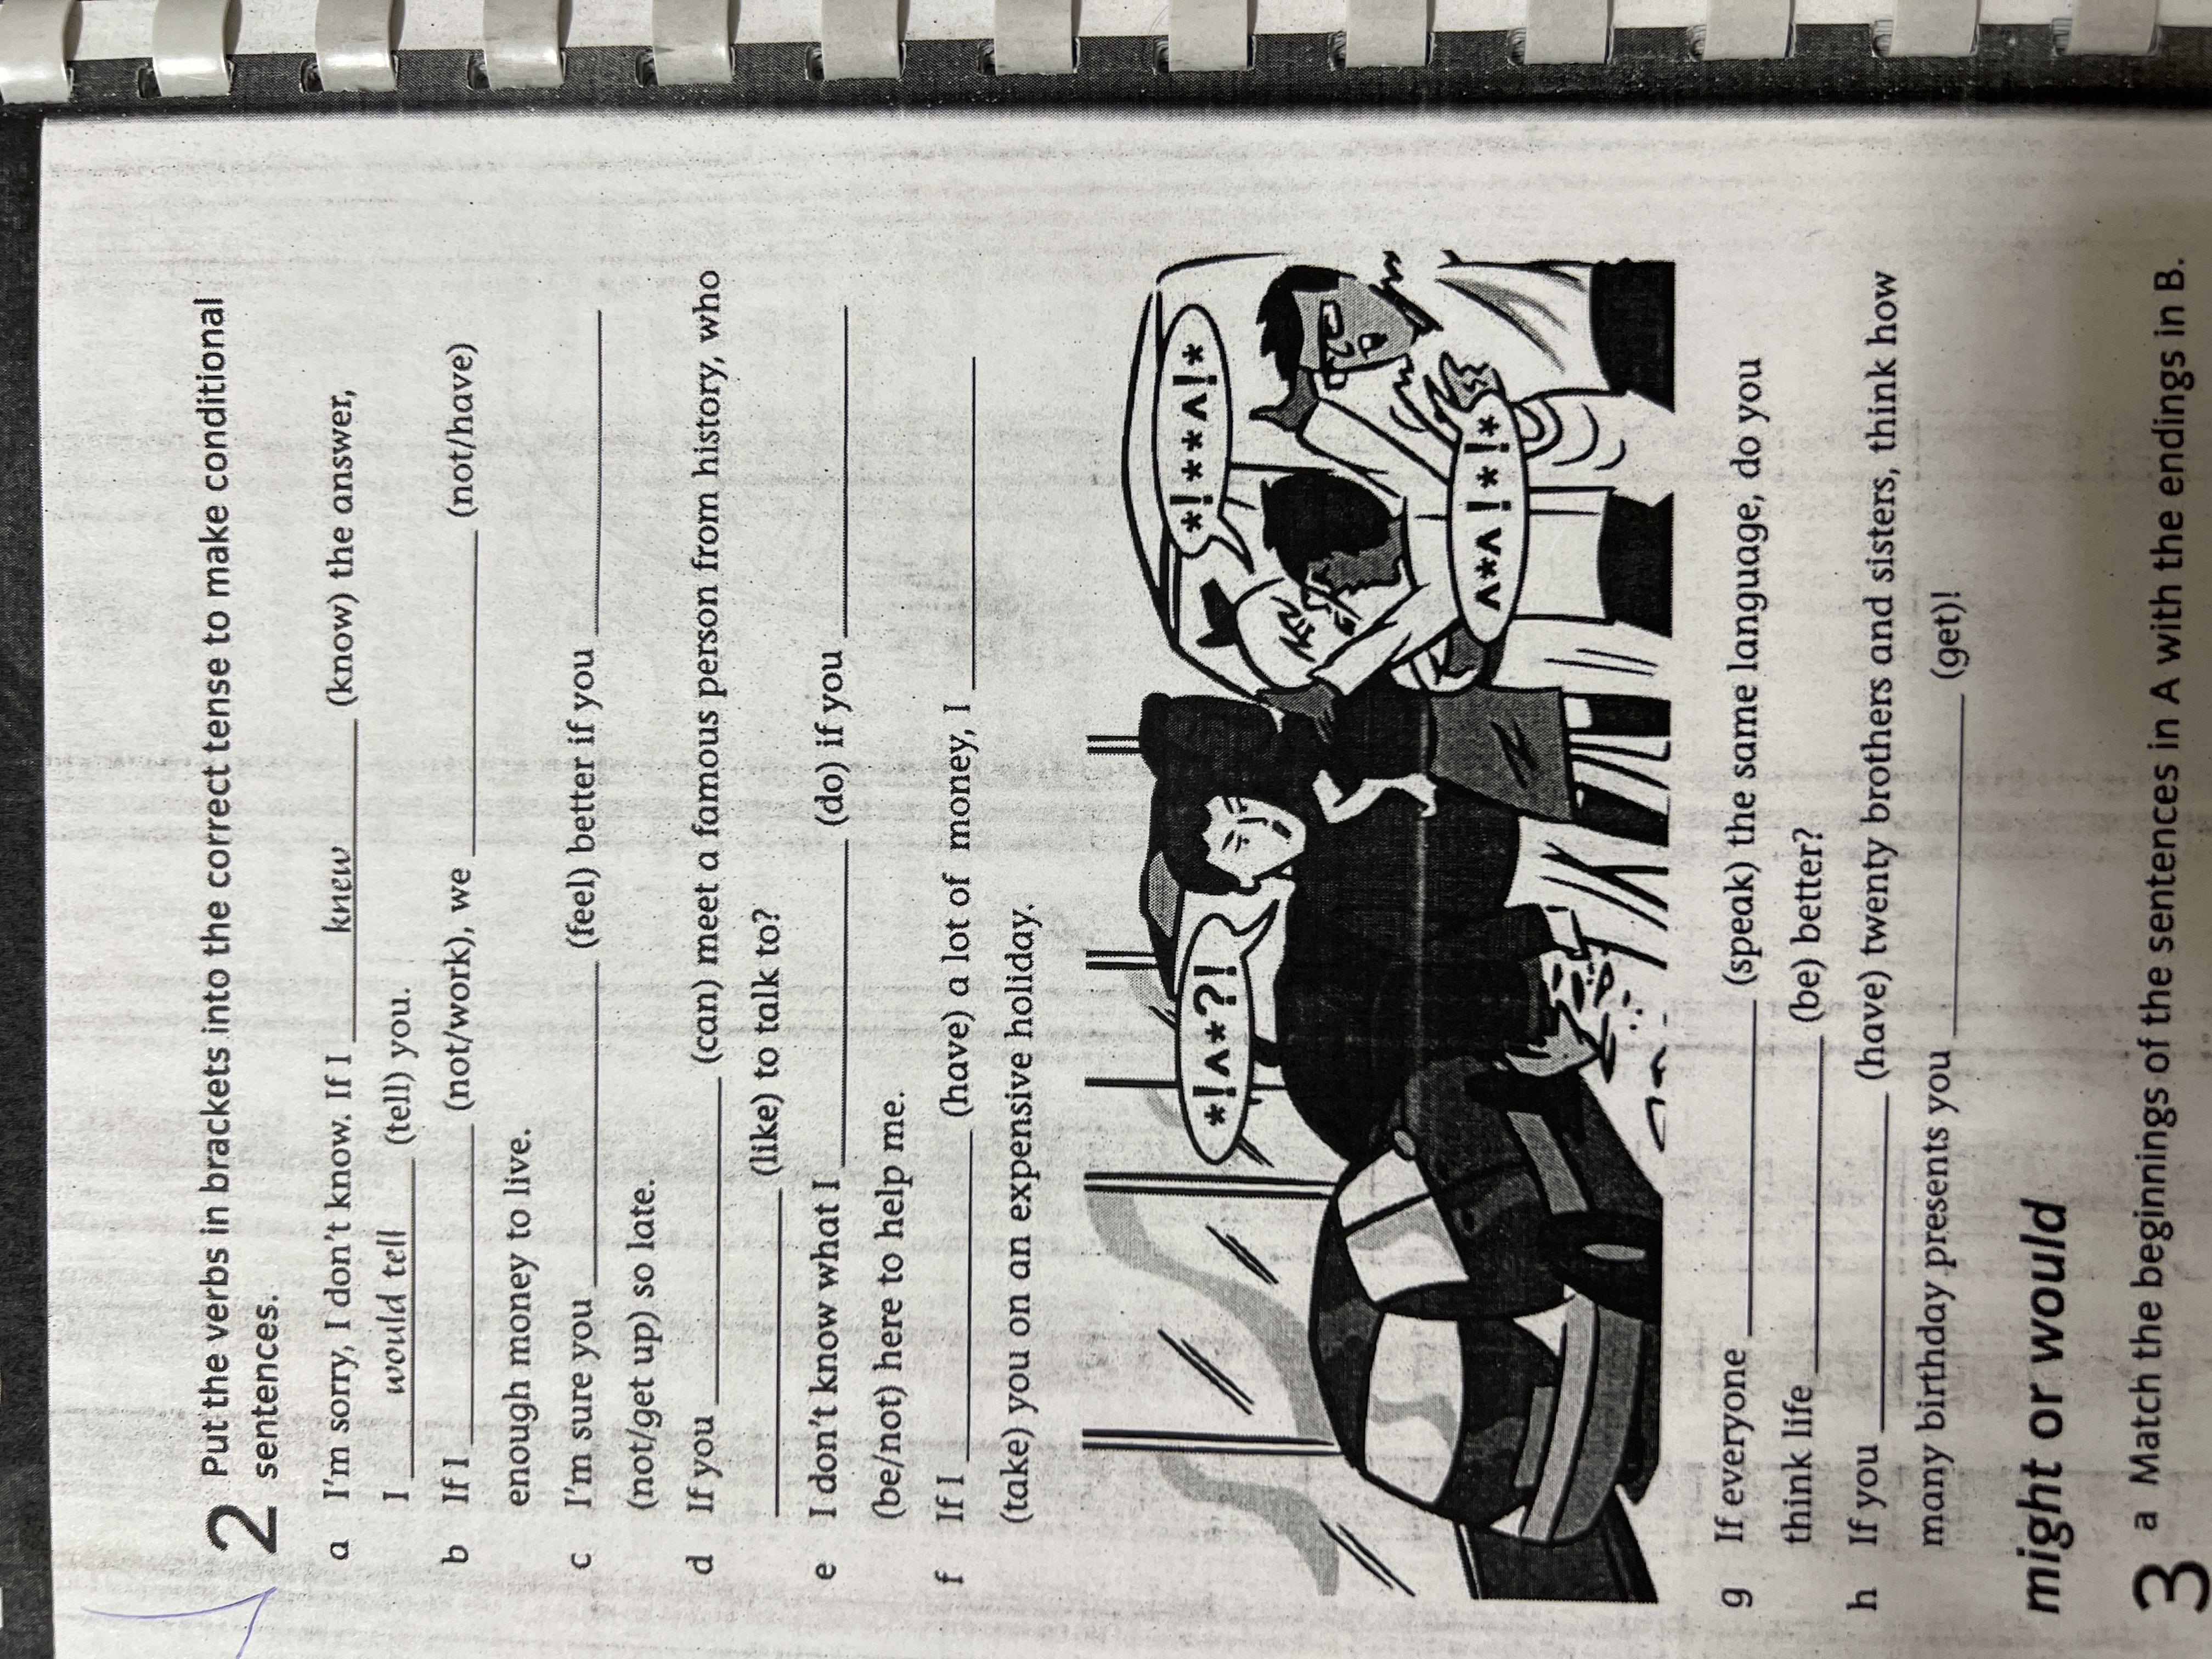 2 Put the verbs in brackets into the correct tense to make conditional
sentences.
a I'm sorry, I don't know. If I ____ knew ____ (know) the answer,
I ____ would tell ____ (tell) you.
b If I ________ (not/work), we ________ (not/have)
enough money to live.
c I'm sure you ________ (feel) better if you ________
(not/get up) so late.
d If you ________ (can) meet a famous person from history, who
________ (like) to talk to?
e I don't know what I ________ (do) if you ________
(be/not) here to help me.
f If I ________ (have) a lot of money, I ________
(take) you on an expensive holiday.
*!^*?!
*!**^!*
^*^!*!*
g If everyone ________ (speak) the same language, do you
think life ________ (be) better?
h If you ________ (have) twenty brothers and sisters, think how
many birthday presents you ________ (get)!
might or would
3 a Match the beginnings of the sentences in A with the endings in B.